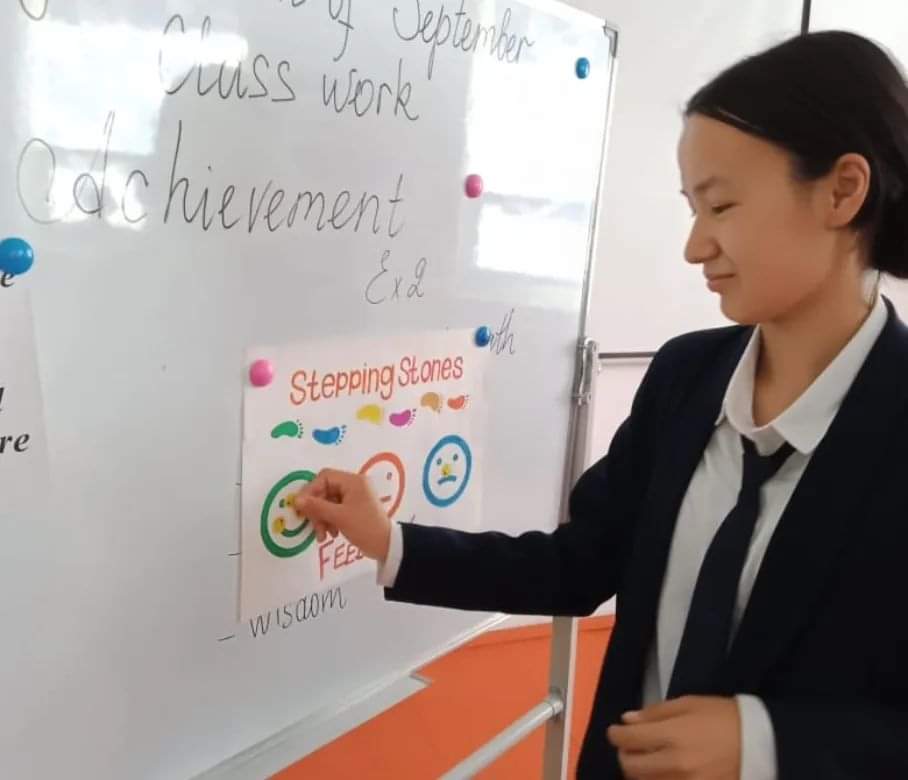 of September
Class work
Adchievement
Ex2
wth
e
re
Stepping Stones
wisdom